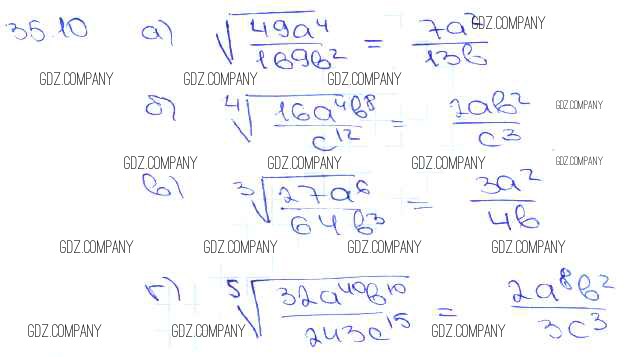 35.10 а) √(49a⁴/169b²) = 7a²/13b
GDZ.COMPANY
GDZ.COMPANY GDZ.COMPANY GDZ.COMPANY
б) ⁴√(16a⁴b⁸/c¹²) = 2ab²/c³
GDZ.COMPANY
GDZ.COMPANY GDZ.COMPANY GDZ.COMPANY GDZ.COMPANY
в) ³√(27a⁶/64b³) = 3a²/4b
GDZ.COMPANY GDZ.COMPANY GDZ.COMPANY GDZ.COMPANY
г) ⁵√(32a⁴⁰b¹⁰/243c¹⁵) = 2a⁸b²/3c³
GDZ.COMPANY GDZ.COMPANY GDZ.COMPANY